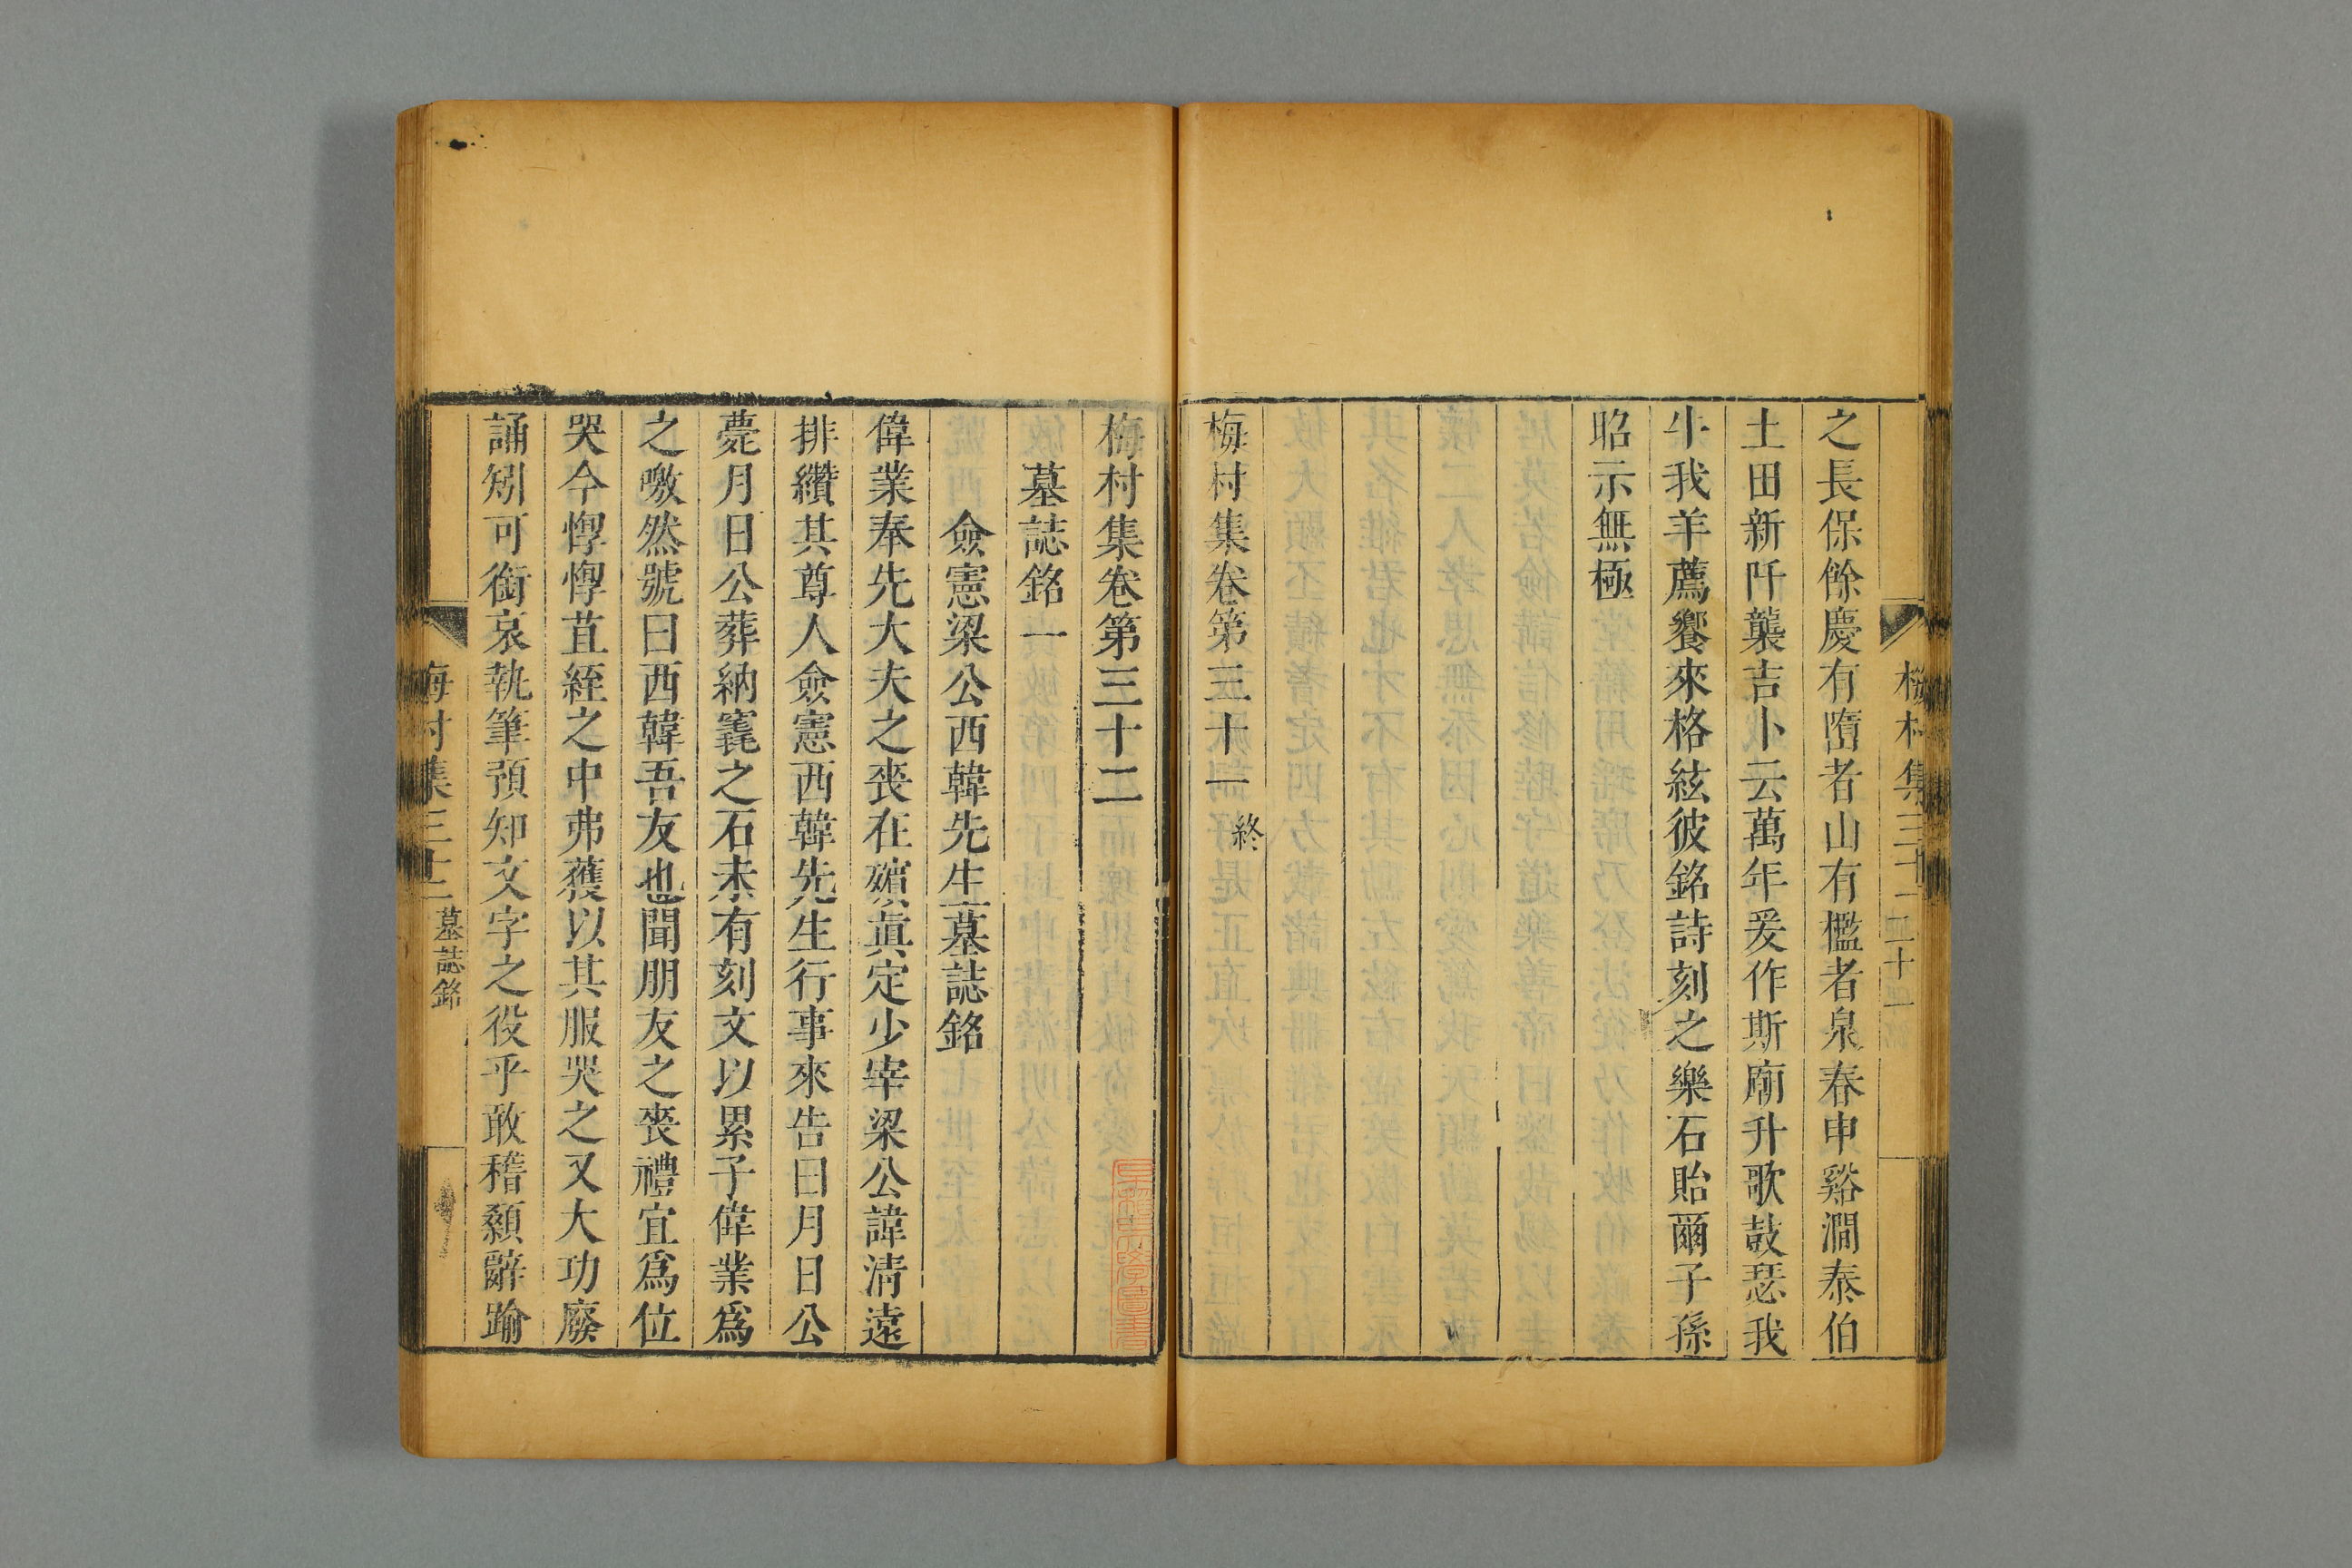 之長保餘慶有隮者山有檻者泉春申谿澗泰伯
土田新阡襲吉卜云萬年爰作斯廟升歌鼓瑟我
牛我羊薦饗來格絃彼銘詩刻之樂石貽爾子孫
昭示無極
梅村集卷第三十一 終
梅村集卷第三十二
墓誌銘一
僉憲梁公西韓先生墓誌銘
偉業奉先大夫之喪在殯眞定少宰梁公諱清遠
排纘其尊人僉憲西韓先生行事來告曰月日公
薨月日公葬納窀之石未有刻文以累子偉業爲
之噭然號曰西韓吾友也聞朋友之喪禮宜爲位
哭今惸惸苴絰之中弗獲以其服哭之又大功廢
誦矧可銜哀執筆預知文字之役乎敢稽顙辭踰
梅村集三十二 墓誌銘